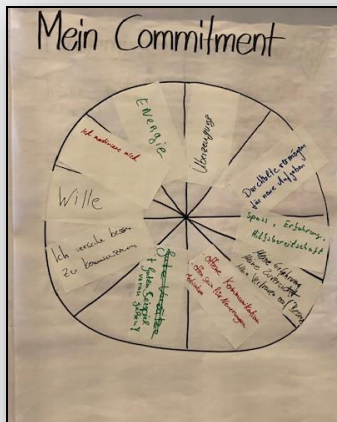 Mein Commitment
Energie
Überzeugung
Durchhaltevermögen
für neue Aufgaben
Spass, Erfahrung,
Hilfsbereitschaft
Meine Erfahrung
Meine Zuversicht
Mein Vertrauen
offene Kommunikation
offen sein für Neuerungen
Gutes
Ich versuche besser
zu kommunizieren
Wille
Ich motiviere mich